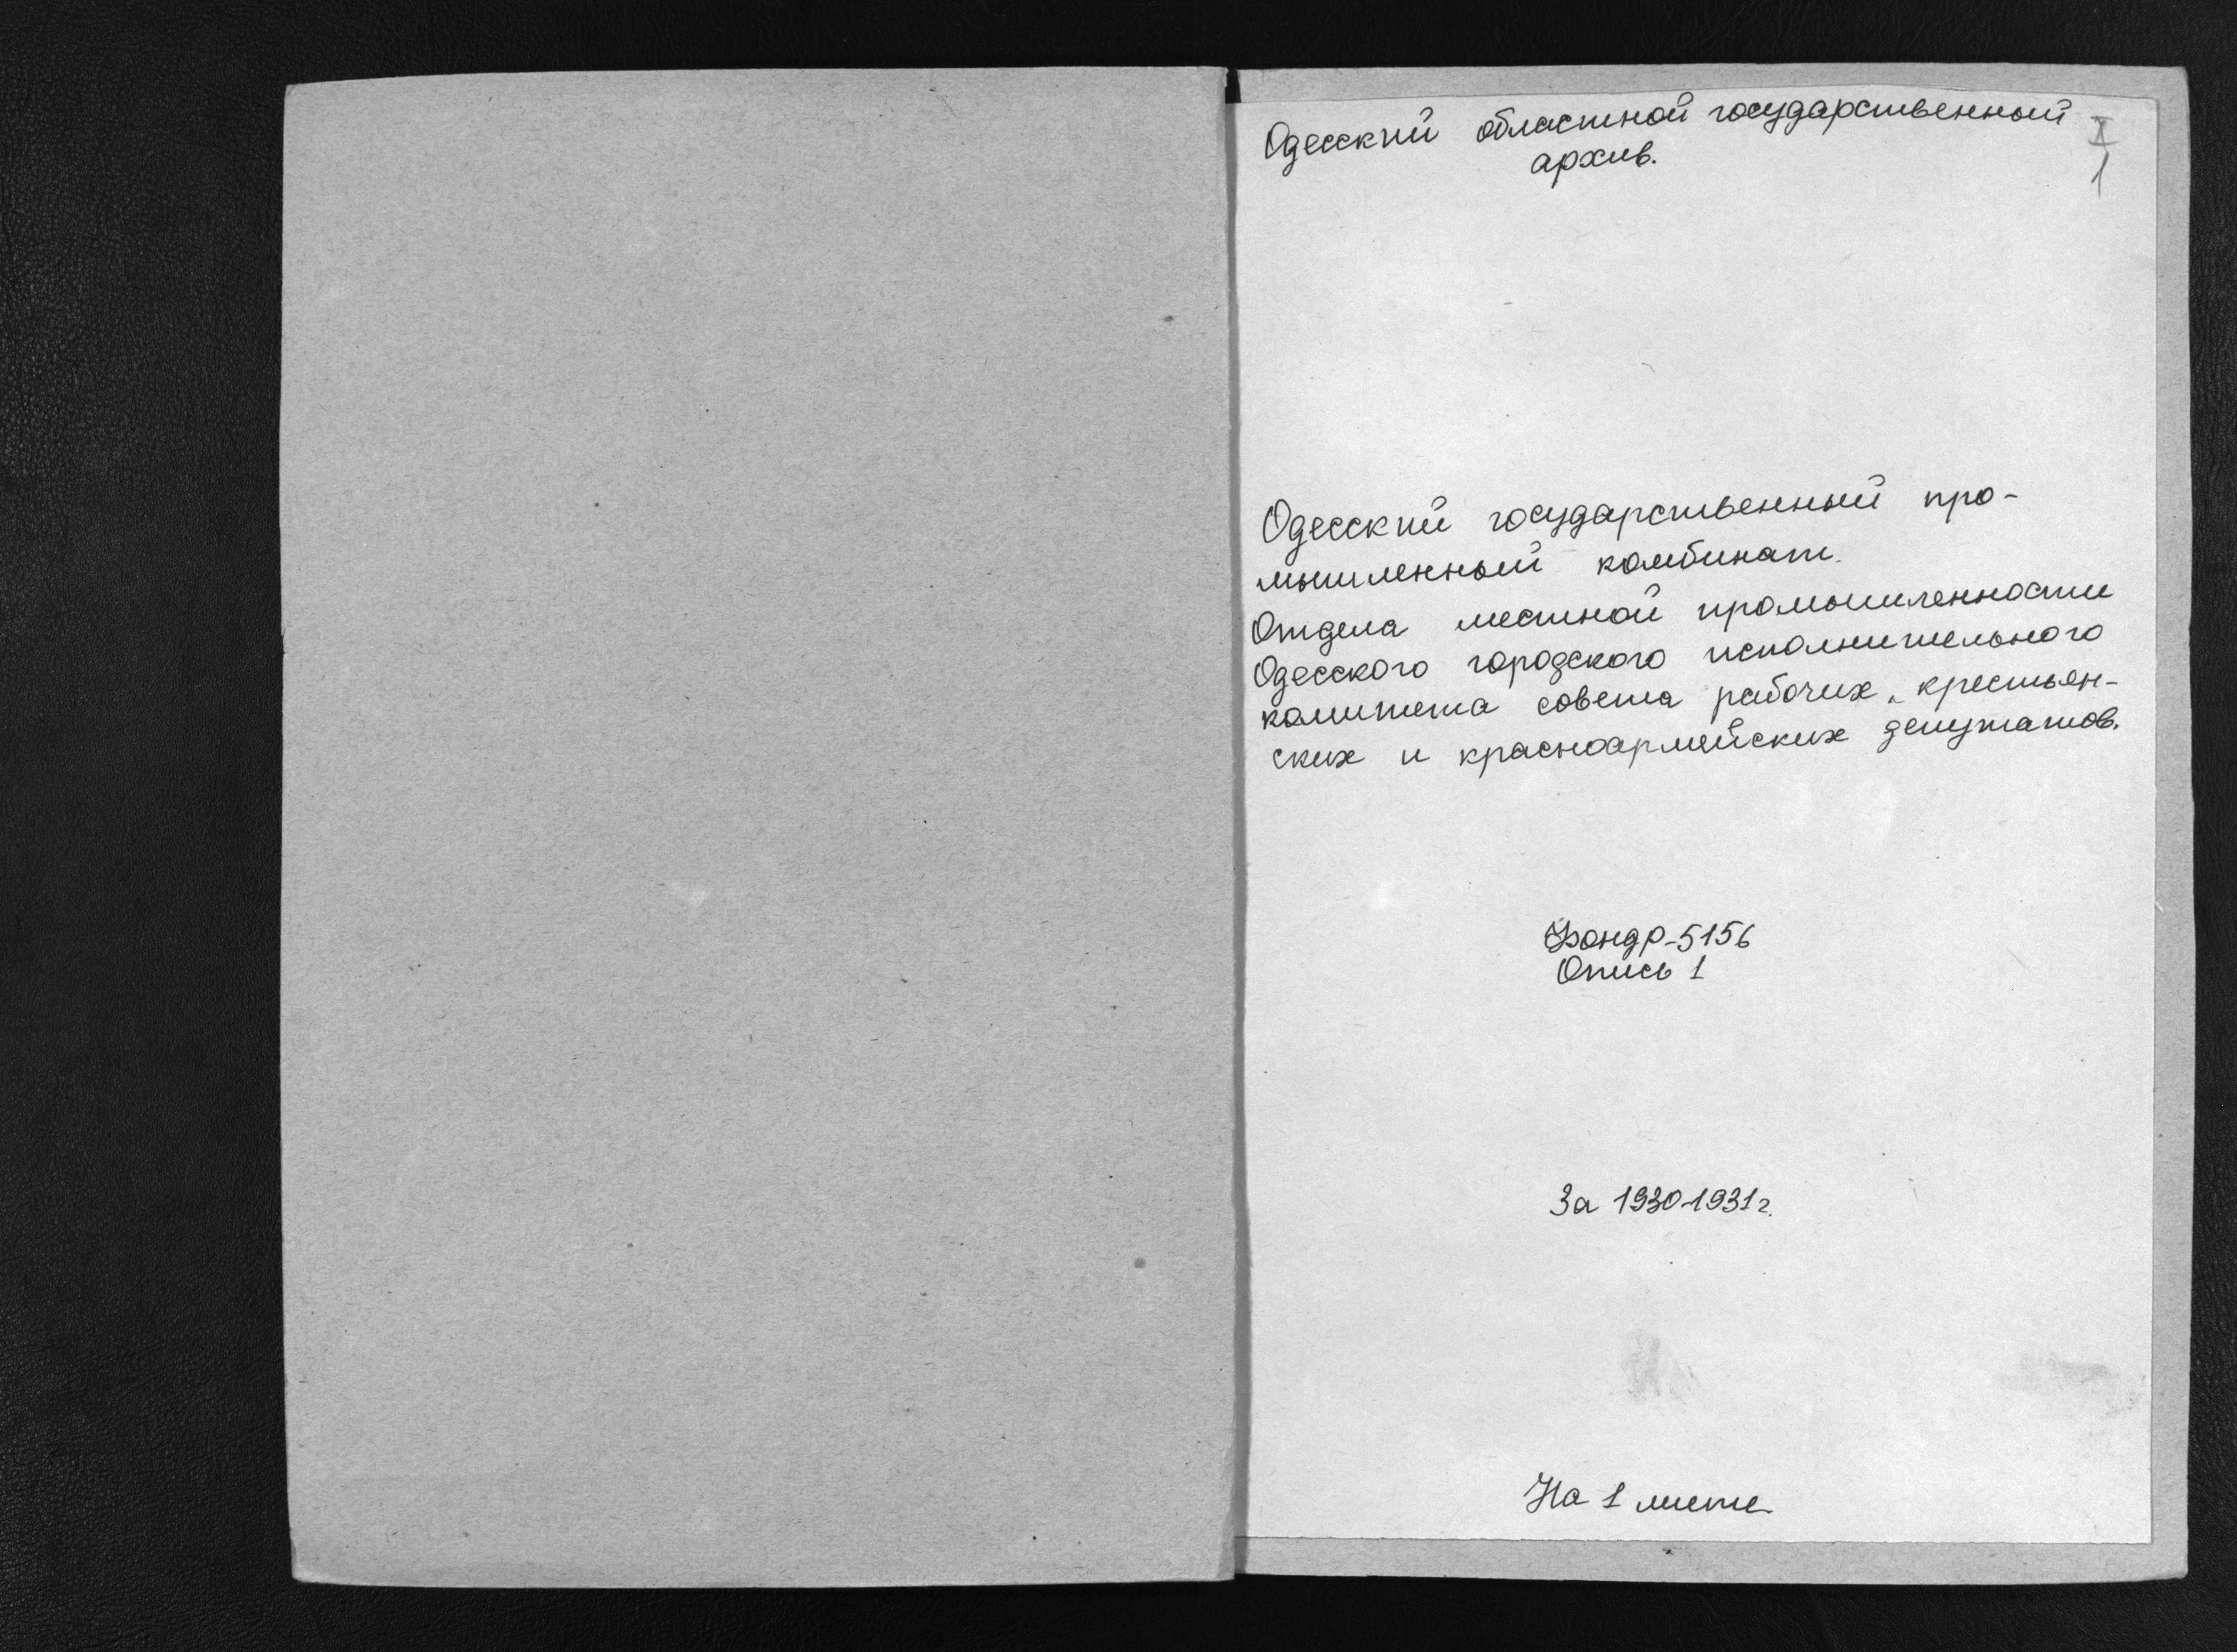 Одесский областной государственный
архив.
1
Одесский государственный про-
мышленный комбинат.
Отдела местной промышленности
Одесского городского исполнительного
комитета совета рабочих, крестьян-
ских и красноармейских депутатов.
Фонд Р-5156
Опись 1
За 1930-1931 г.
На 1 листе